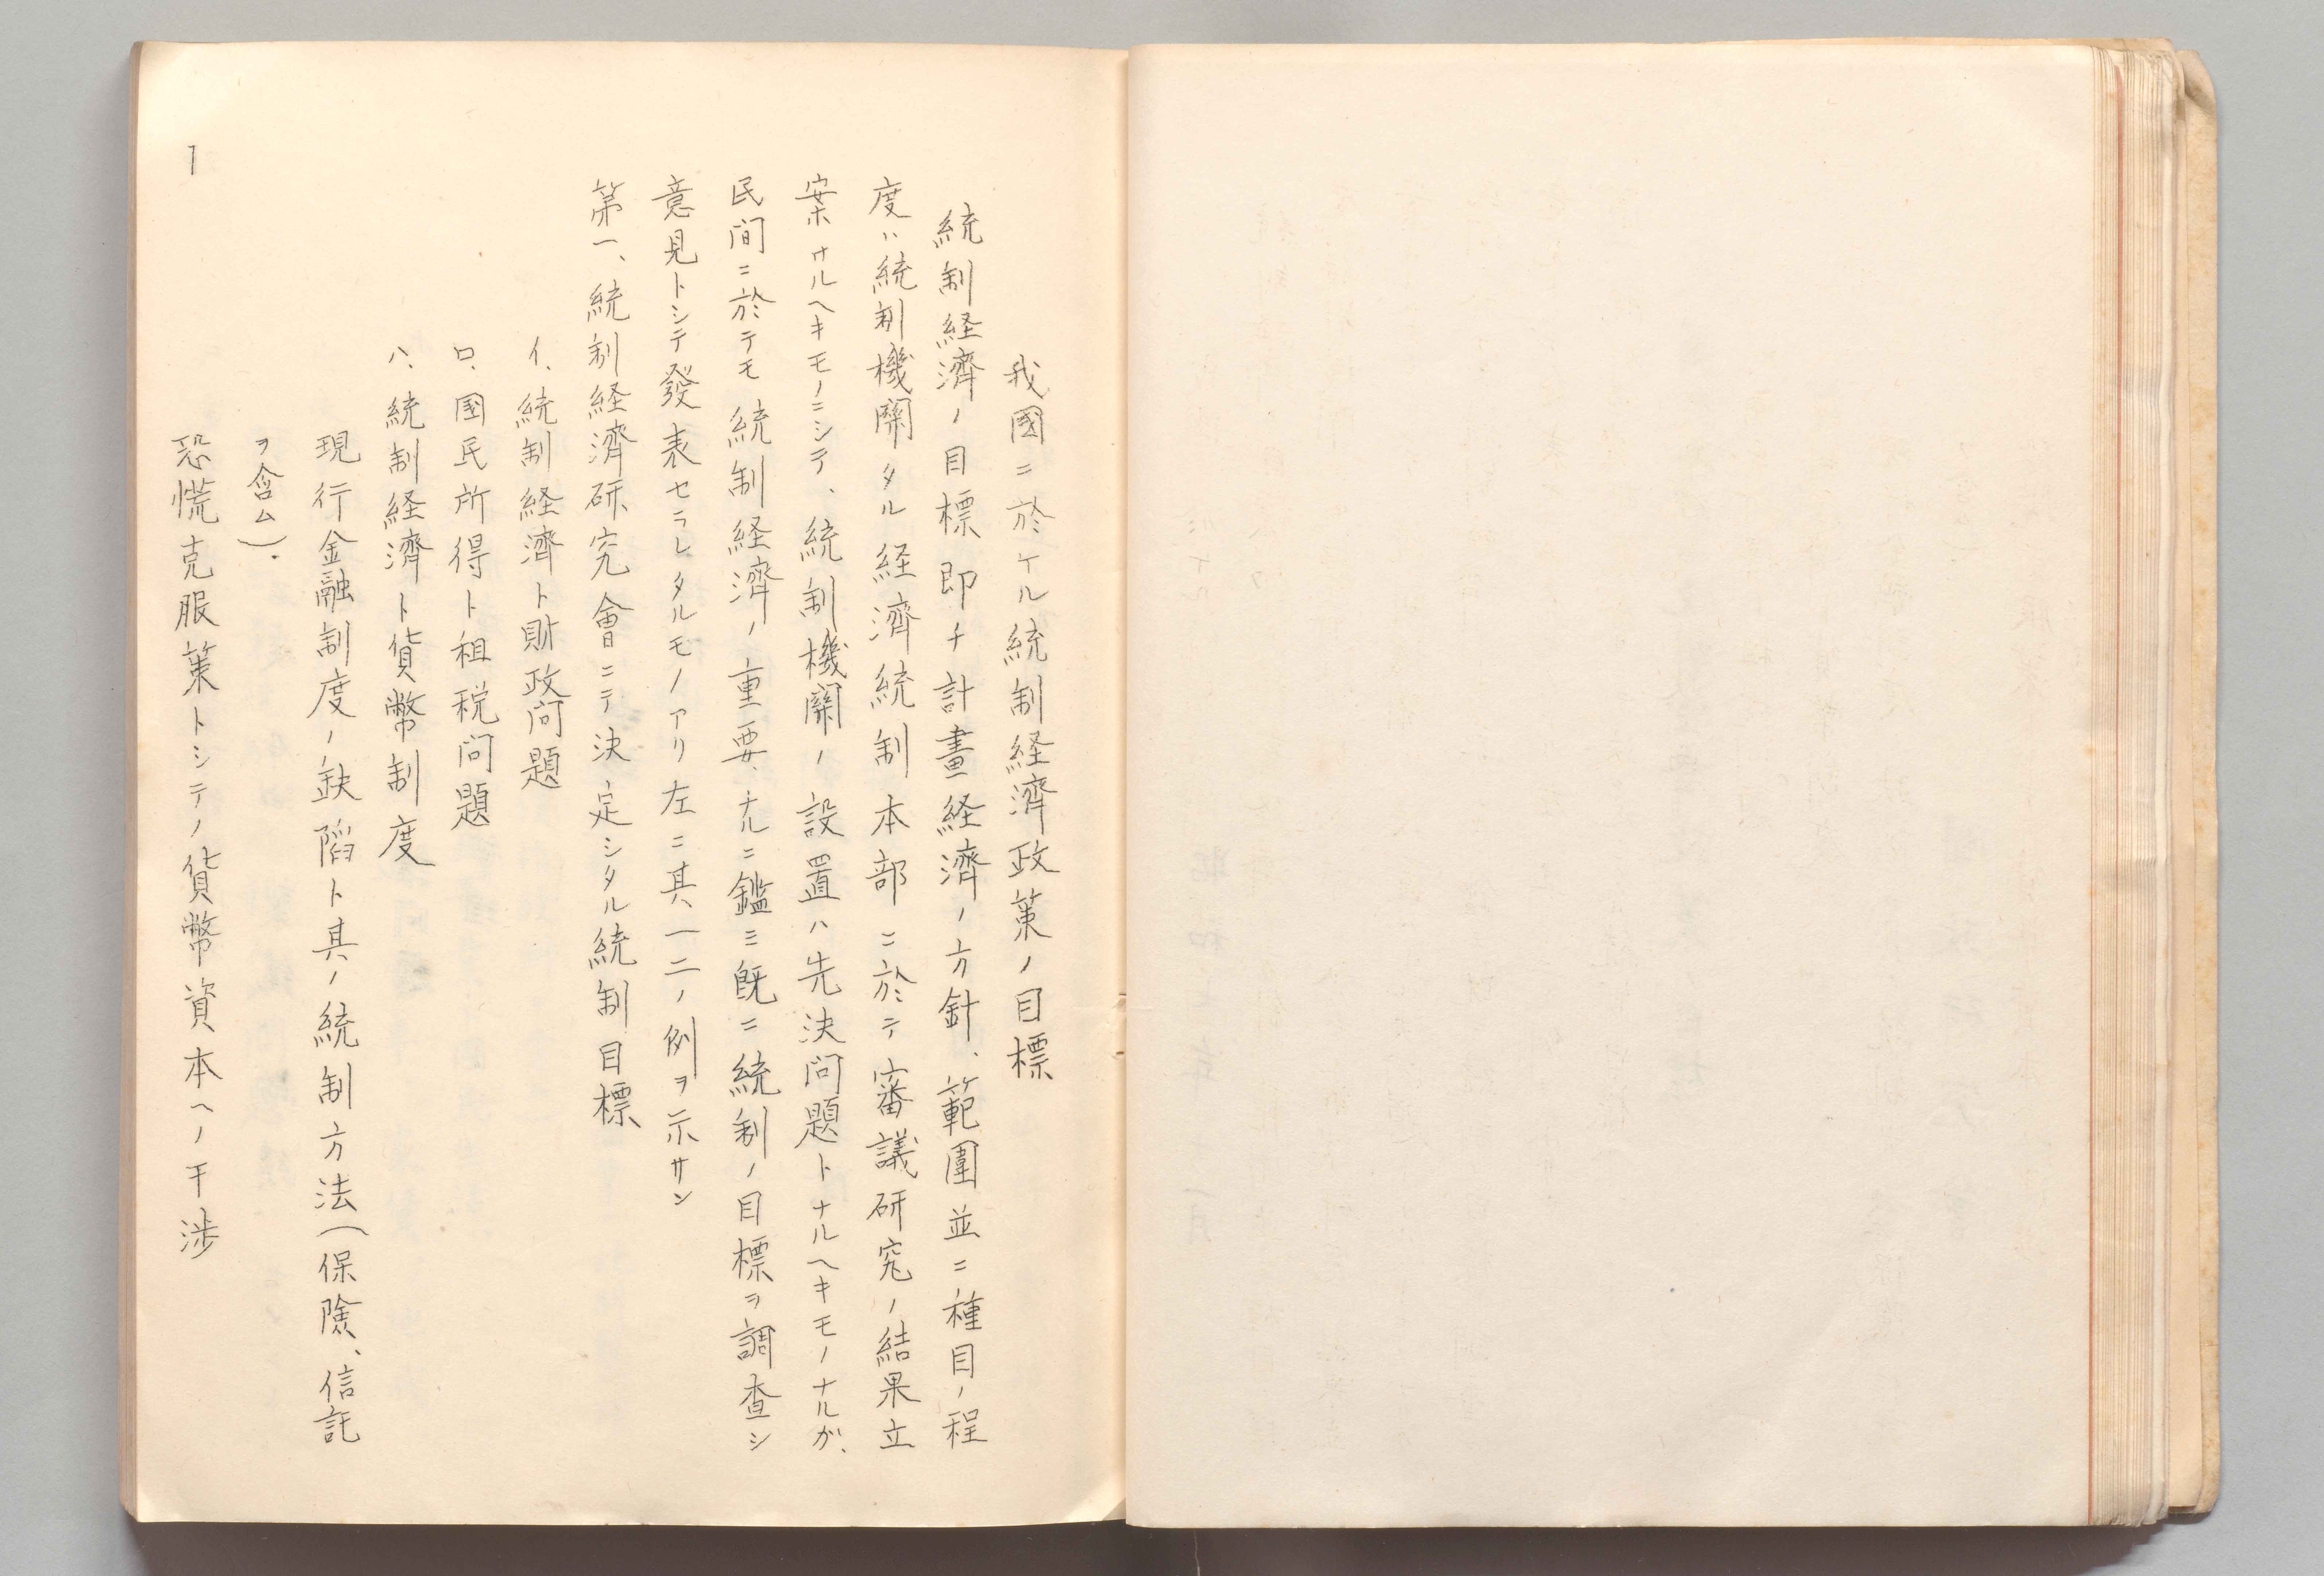 我國ニ於ケル統制経済政策ノ目標
統制経済ノ目標即チ計畫経済ノ方針、範圍並ニ種目ノ程
度ハ統制機關タル経済統制本部ニ於テ審議研究ノ結果立
案サルヘキモノニシテ、統制機關ノ設置ハ先決问題トナルヘキモノナルガ、
民间ニ於テモ統制経済ノ重要ナルニ鑑ミ既ニ統制ノ目標ヲ調査シ
意見トシテ發表セラレタルモノアリ左ニ其一二ノ例ヲ示サン
第一、統制経済研究會ニテ決定シタル統制目標
イ、統制経済ト財政问題
ロ、國民所得ト租税问題
ハ、統制経済ト貨幣制度
現行金融制度ノ缺陷ト其ノ統制方法(保險、信託
ヲ含ム)。
恐慌克服策トシテノ貨幣資本ヘノ干渉
1